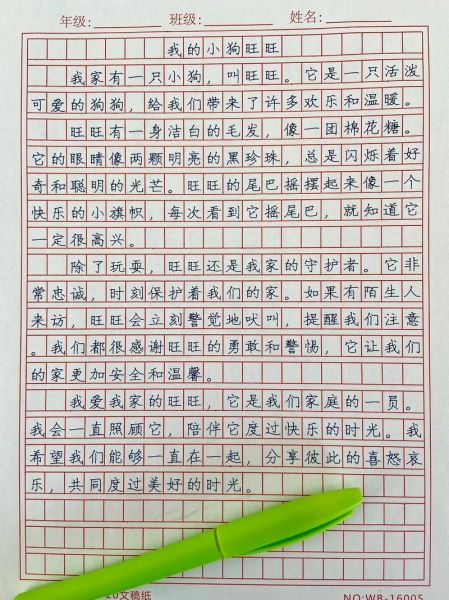 年级： 班级： 姓名：
我的小狗旺旺
我家有一只小狗，叫旺旺。它是一只活泼
可爱的狗狗，给我们带来了许多欢乐和温暖。
旺旺有一身洁白的毛发，像一团棉花糖。
它的眼睛像两颗明亮的黑珍珠，总是闪烁着好
奇和聪明的光芒。旺旺的尾巴摇摆起来像一个
快乐的小旗帜，每次看到它摇尾巴，就知道它
一定很高兴。
除了玩耍，旺旺还是我家的守护者。它非
常忠诚，时刻保护着我们的家。如果有陌生人
来访，旺旺会立刻警觉地吠叫，提醒我们注意
。我们都很感谢旺旺的勇敢和警惕，它让我们
的家更加安全和温馨。
我爱我家的旺旺，它是我们家庭的一员。
我会一直照顾它，陪伴它度过快乐的时光。我
希望我们能够一直在一起，分享彼此的喜怒哀
乐，共同度过美好的时光。
20文稿纸 NO:WB-16005